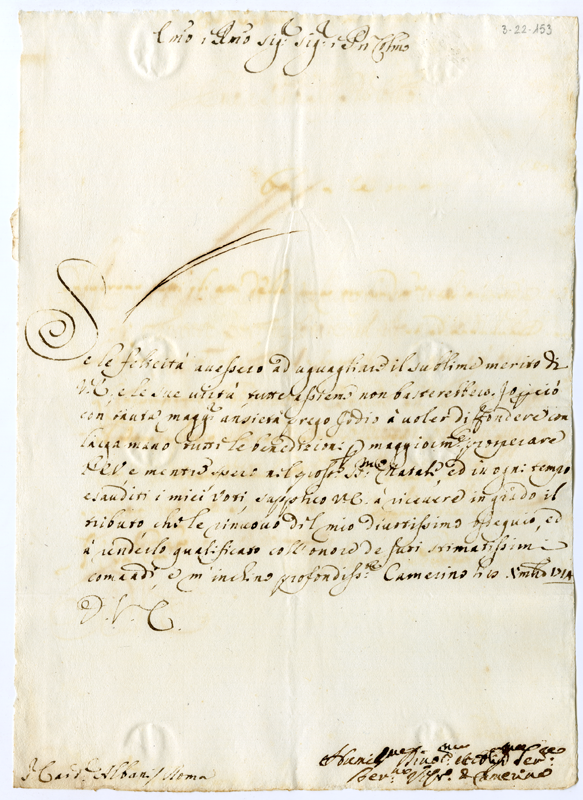 3-22-153
Em̃o e Rm̃o Sig.r Sig.r e Pñ Colm̃o
Se le felicità auessero ad uguagliare il sublime merito di
V.E. e le sue uirtù, tutte assieme non basterebbero. Io perciò
con tanta magg.r ansietà prego Iddio à voler diffondere con
larga mano tutti le benedizioni p maggiorm.te prosperare
V.E. e mentre spero nel pross.o S.mo Natale, ed in ogni tempo
esauditi i miei Voti supplico V.E. à riceuere in grado il
tributo che le rinuouo del mio diuotissimo ossequio, ed
à renderlo qualificato coll'onore de suoi stimatissimi
comandi, e m'inchino profondiss.te Camerino Xmbre 1714
D. V. E.
Card.e Albani Roma
Humil.mo Diuot.mo
Ber.no di Camerino